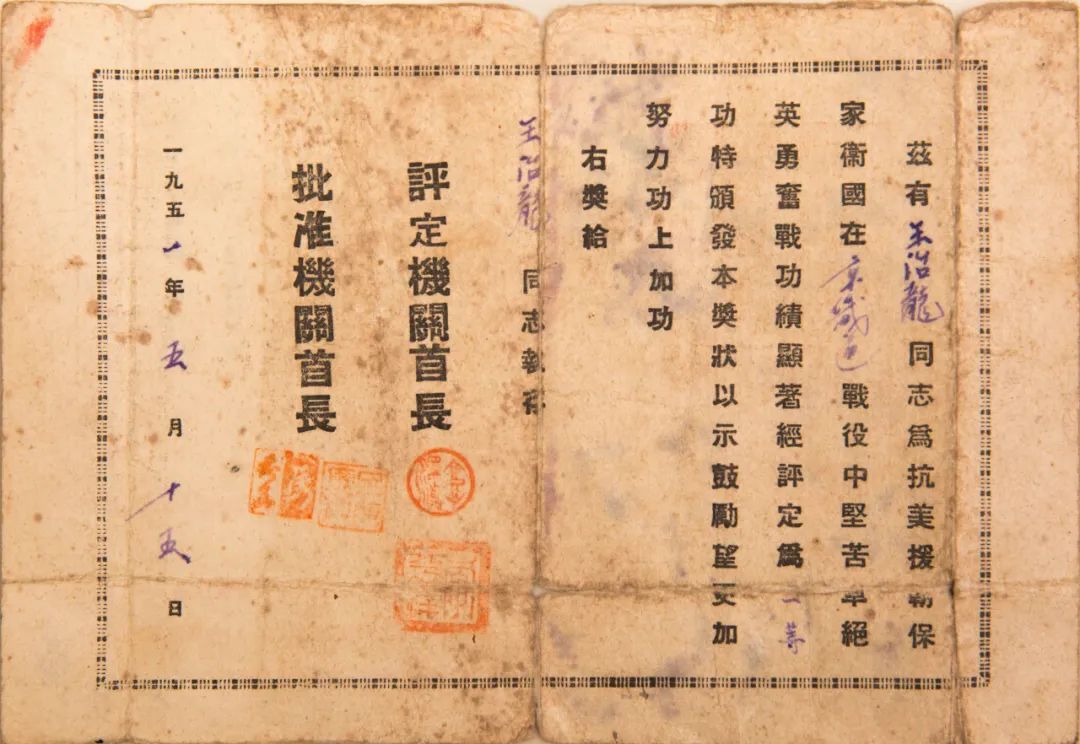 茲有王治龍同志爲抗美援朝保
家衞國在京畿道戰役中堅苦卓絕
英勇奮戰功績顯著經評定爲一等
功特頒發本獎狀以示鼓勵望更加
努力功上加功
右獎給
王治龍同志執存
評定機關首長
批准機關首長
一九五一年五月十五日